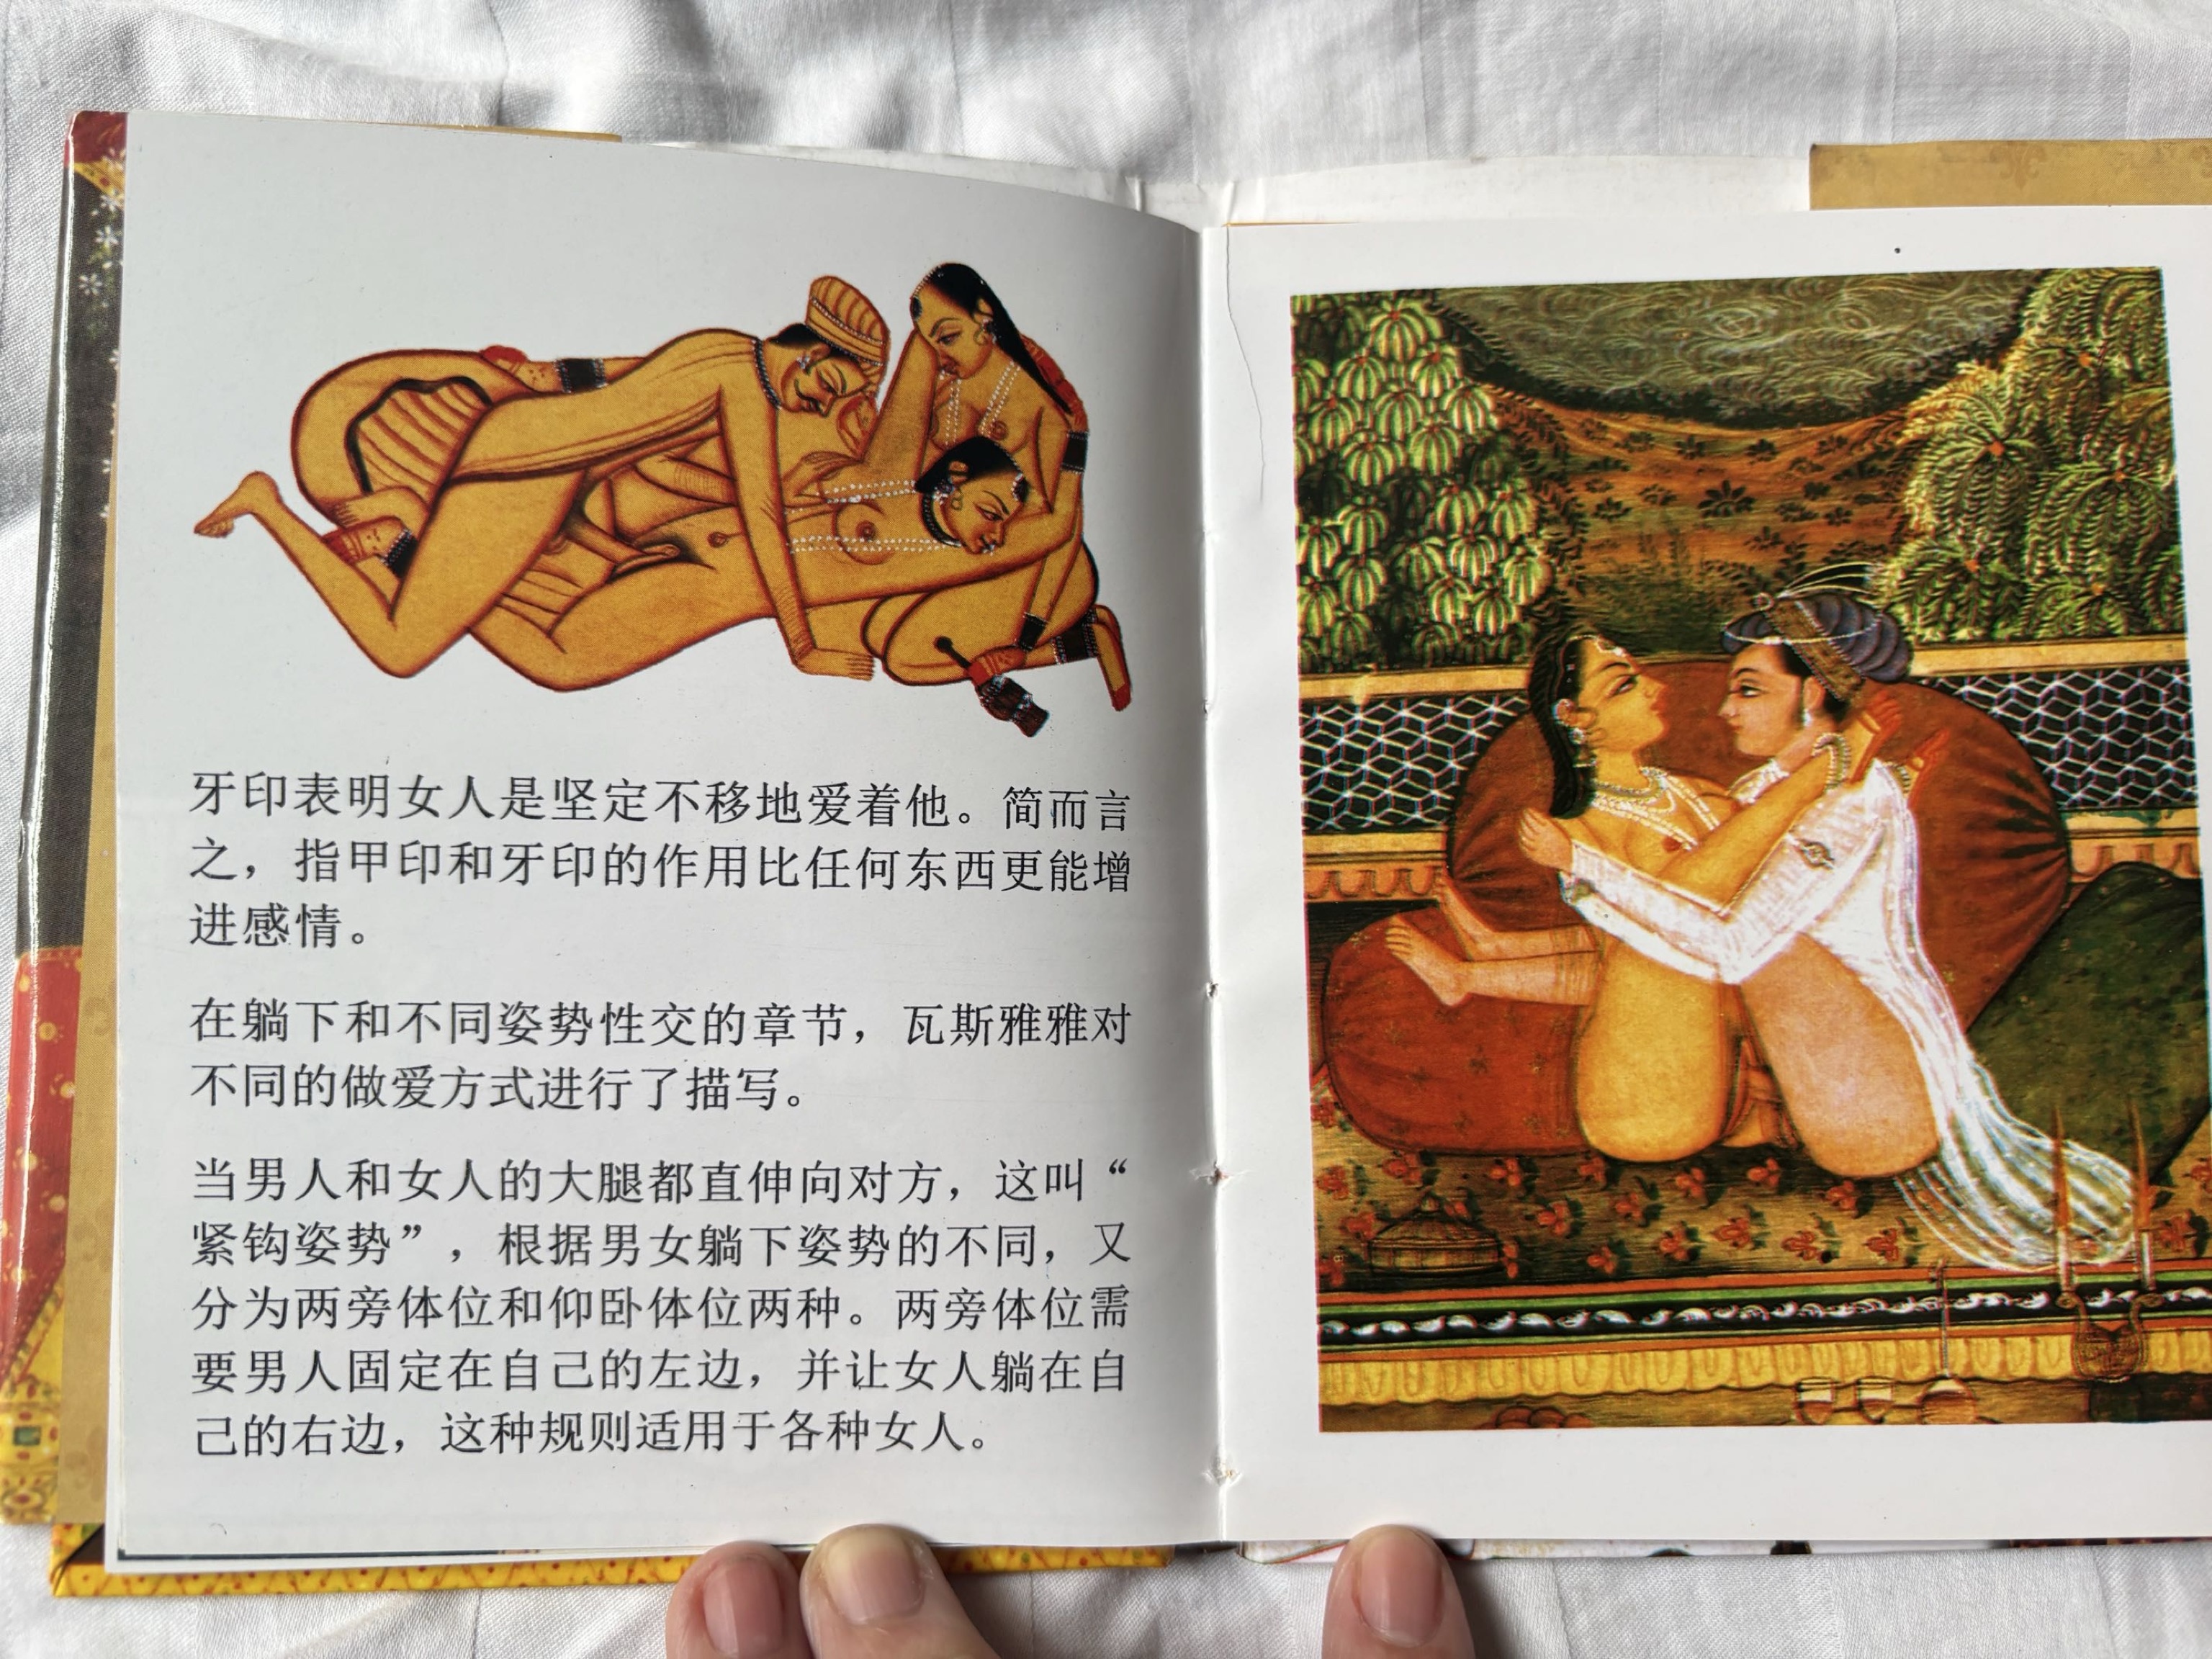 牙印表明女人是坚定不移地爱着他。简而言
之，指甲印和牙印的作用比任何东西更能增
进感情。
在躺下和不同姿势性交的章节，瓦斯雅雅对
不同的做爱方式进行了描写。
当男人和女人的大腿都直伸向对方，这叫“
紧钩姿势”，根据男女躺下姿势的不同，又
分为两旁体位和仰卧体位两种。两旁体位需
要男人固定在自己的左边，并让女人躺在自
己的右边，这种规则适用于各种女人。